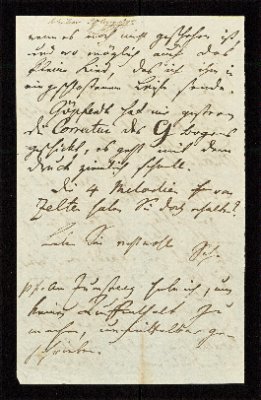 wenn es noch nicht geschehen ist
und wo möglich auch das
kleine Lied, das ich ihm
eingeschlossenen Leiste sende.
Göpferdt hat mir gestern
die Correctur des G bogens
geschickt, es geht mit dem
Druck ziemlich schnell.
Die 4 Melodien von
Zelter haben Sie doch erhalten?
Leben Sie recht wohl
Sch.
habe ich, um
keinen Aufenthalt zu
machen, unmittelbar ge-
schrieben.